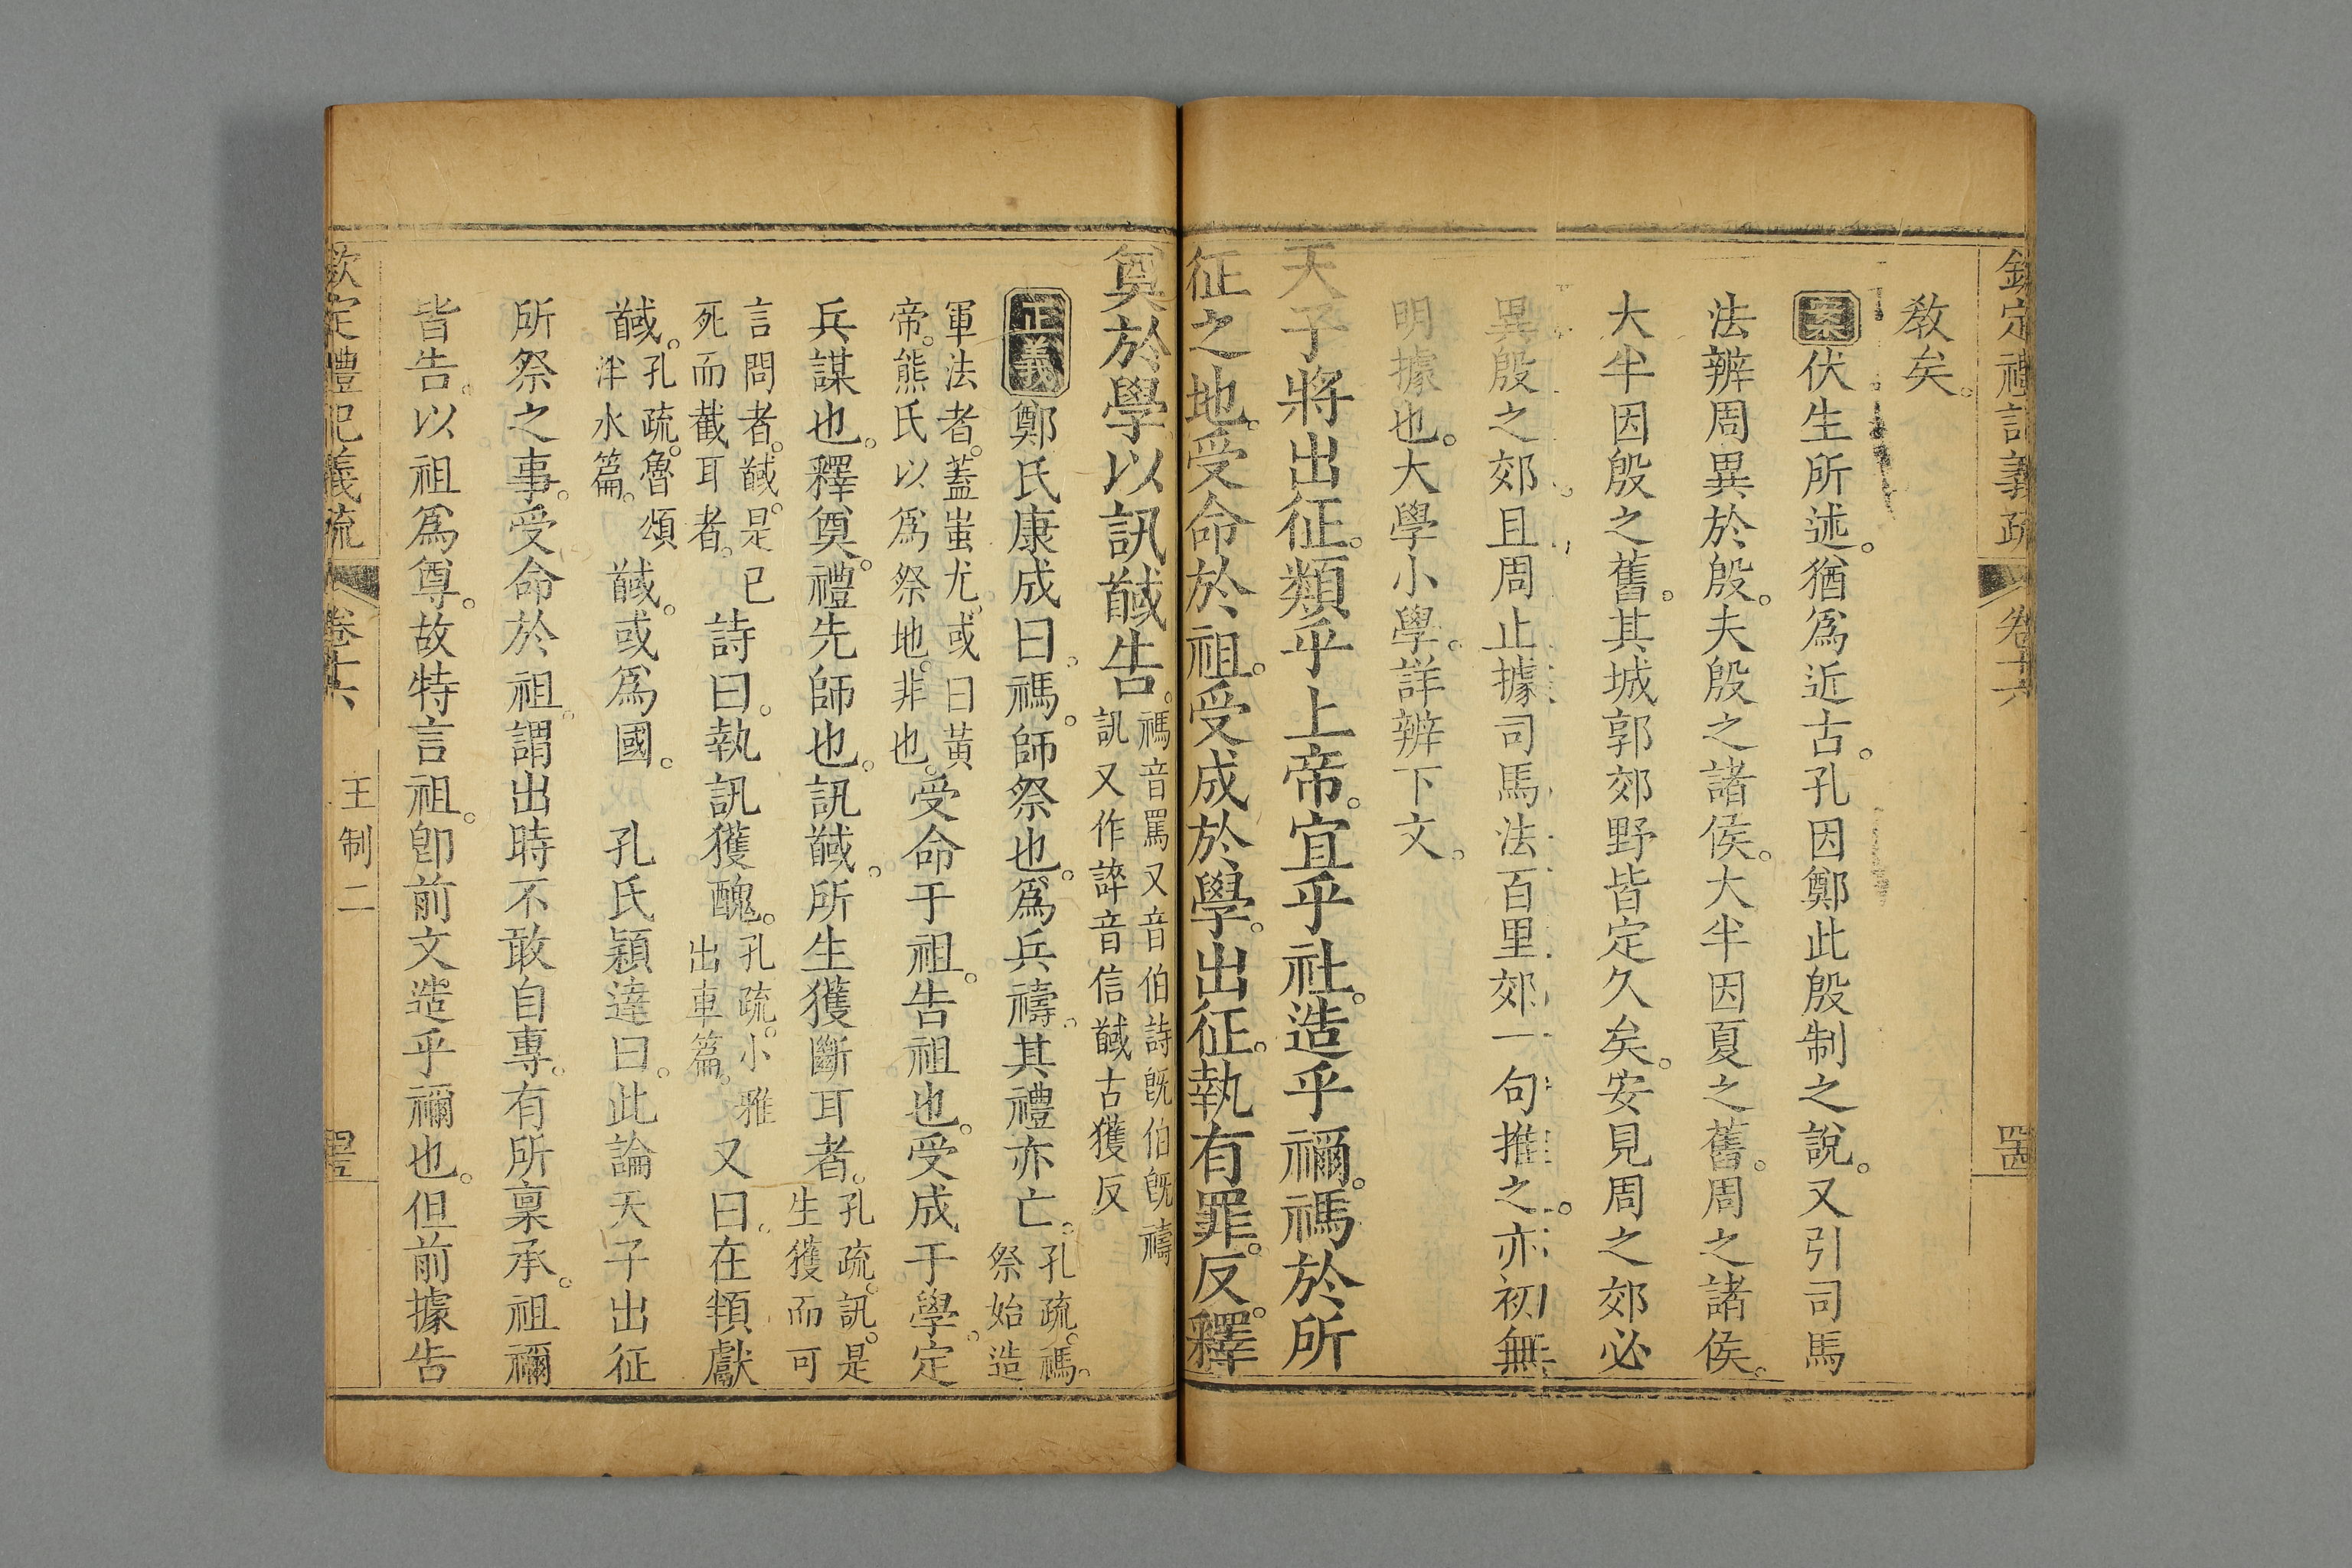 欽定禮記義疏 卷十六 罟
敎矣。
案伏生所述。猶爲近古。孔因鄭此殷制之說。又引司馬
法辨周異於殷。夫殷之諸侯。大半因夏之舊。周之諸侯。
大半因殷之舊。其城郭郊野皆定久矣。安見周之郊必
異殷之郊。且周止據司馬法百里郊一句推之。亦初無
明據也。大學小學。詳辨下文。
天子將出征。類乎上帝。宜乎社。造乎禰。禡於所
征之地。受命於祖。受成於學。出征。執有罪。反。釋
奠於學以訊馘告。禡音罵又音伯詩旣伯旣禱
訊又作誶音信馘古獲反
正義鄭氏康成曰。禡。師祭也。爲兵禱。其禮亦亡。孔疏。禡。
祭始造
軍法者。蓋蚩尤。或曰黃
帝。熊氏以爲祭地。非也。受命于祖。告祖也。受成于學。定
兵謀也。釋奠。禮先師也。訊馘。所生獲斷耳者。孔疏。訊。是
生獲而可
言問者。馘。是已
死而截耳者。詩曰。執訊獲醜。孔疏。小雅
出車篇。又曰。在頖獻
馘。孔疏。魯頌
泮水篇。馘。或爲國。 孔氏穎達曰。此論天子出征
所祭之事。受命於祖。謂出時不敢自專。有所稟承。祖禰
皆告。以祖爲尊。故特言祖。卽前文造乎禰也。但前據告
欽定禮記義疏 卷十六 王制二